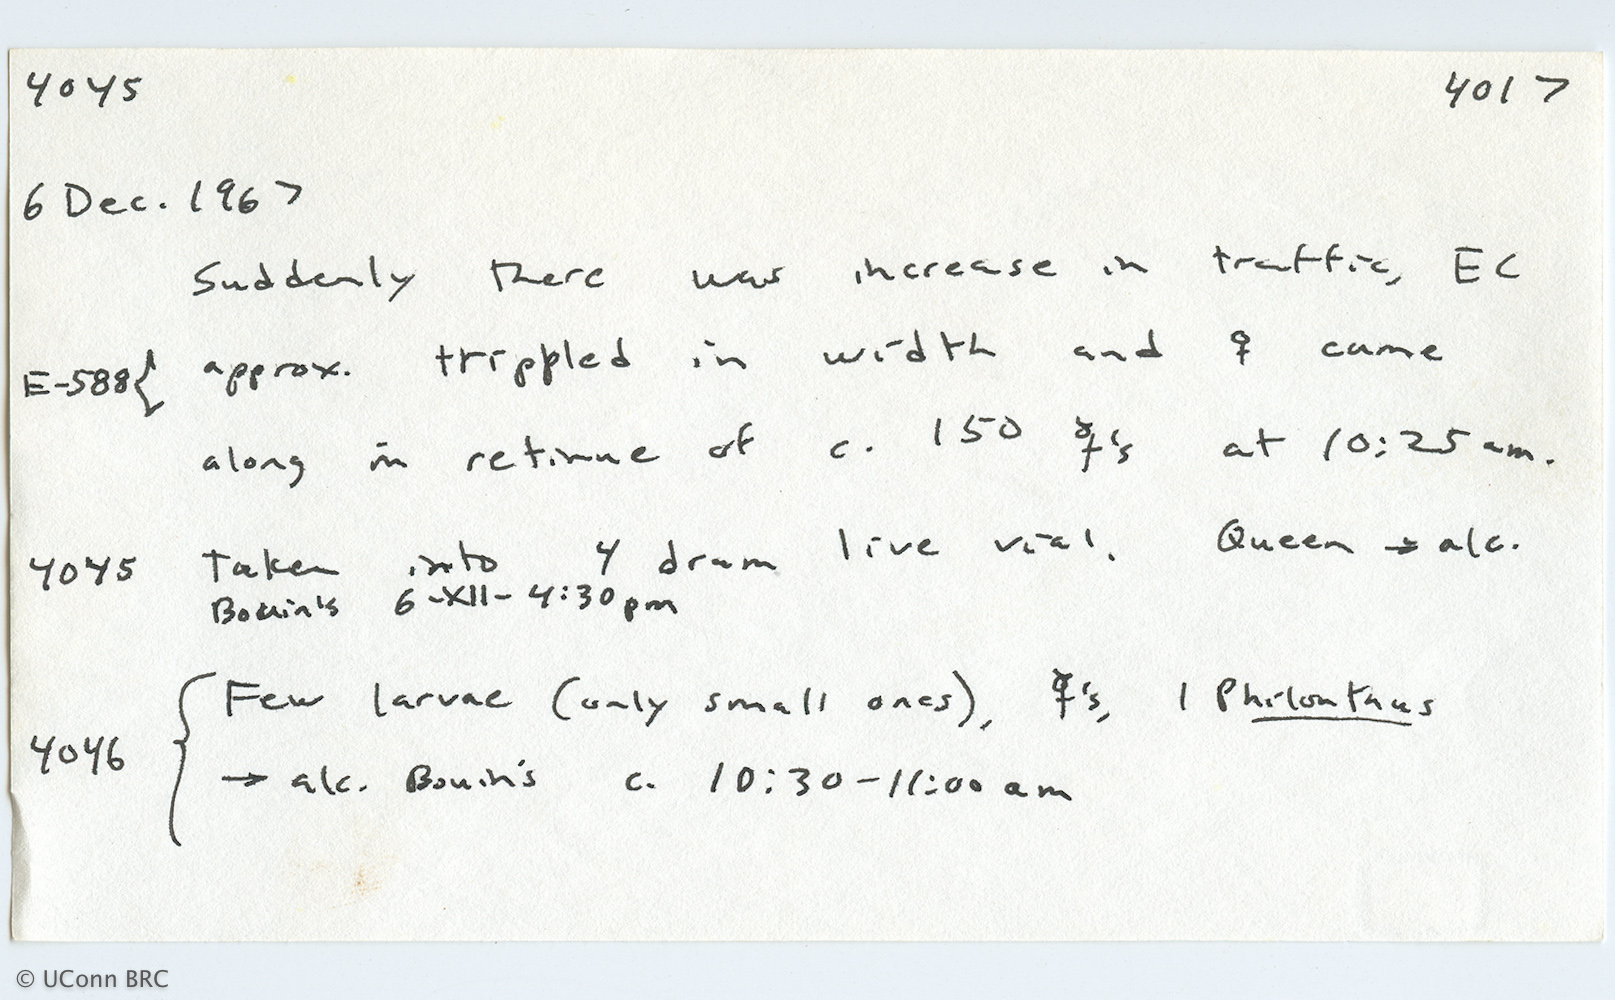 4045 4017
6 Dec. 1967
Suddenly there was increase in traffic, EC
E-588{ approx. trippled in width and ♀ came
along in retinue of c. 150 ☿'s at 10:25 am.
4045 Taken into 4 dram live vial. Queen → alc.
Bouin's 6-XII- 4:30pm
Few larvae (only small ones), ☿'s, 1 Philonthus
4046 { → alc. Bouin's c. 10:30-11:00 am
© UConn BRC